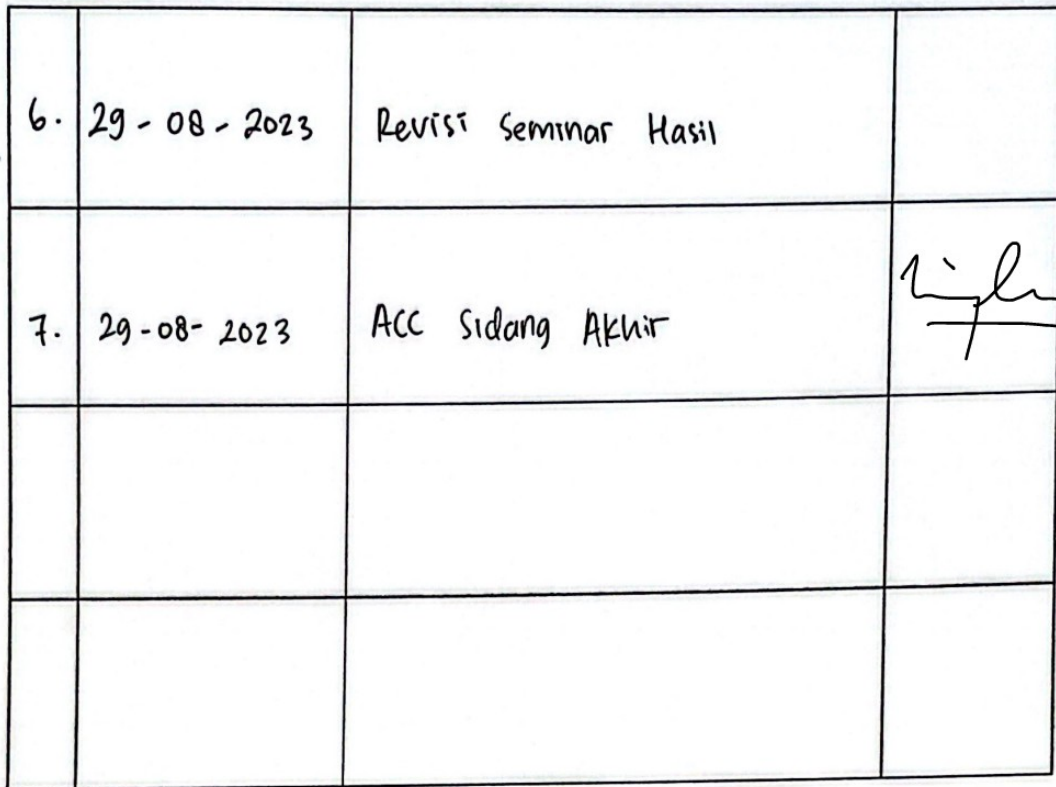 6. 29-08-2023 Revisi Seminar Hasil
7. 29-08-2023 ACC Sidang Akhir